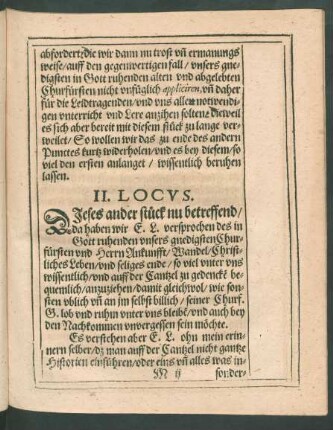 abfordert: die wir dann nu trost vñ ermanungs
weise/ auff den gegenwertigen fall/ vnsers gne-
digsten in Gott ruhenden alten vnd abgelebten
Churfürsten nicht vnfüglich appliciren, vñ daher
für die Leidtragenden/ vnd vns allen notwendi-
gen vnterricht vnd Lere anzihen solten: Dieweil
es sich aber bereit mit diesem stück zu lange ver-
weilet/ So wollen wir das zu ende des andern
Punctes kurtz widerholen/ vnd es bey diesem/ so
viel den ersten anlanget/ wissentlich beruhen
lassen.
II. LOCVS.
DJeses ander stück nu betreffend/
da haben wir E. L. versprochen des in
Gott ruhenden vnsers gnedigsten Chur-
fürsten vnd Herrn Ankunfft/ Wandel/ Christ-
liches Leben/ vnd seliges ende/ so viel vnter vns
wissentlich/ vnd auff der Cantzel zu gedencķē be-
quemlich/ anzuziehen/ damit gleichwol/ wie son-
sten vblich vñ an jm selbst billich/ seiner Churf.
G. lob vnd ruhm vnter vns bleibē/ vnd auch bey
den Nachkommen vnvergessen sein möchte.
Es verstehen aber E. L. ohn mein erin-
nern selber/ dz man auff der Cantzel nicht gantze
Historien einführen/ oder eins vñ alles was in-
M ij sonder-